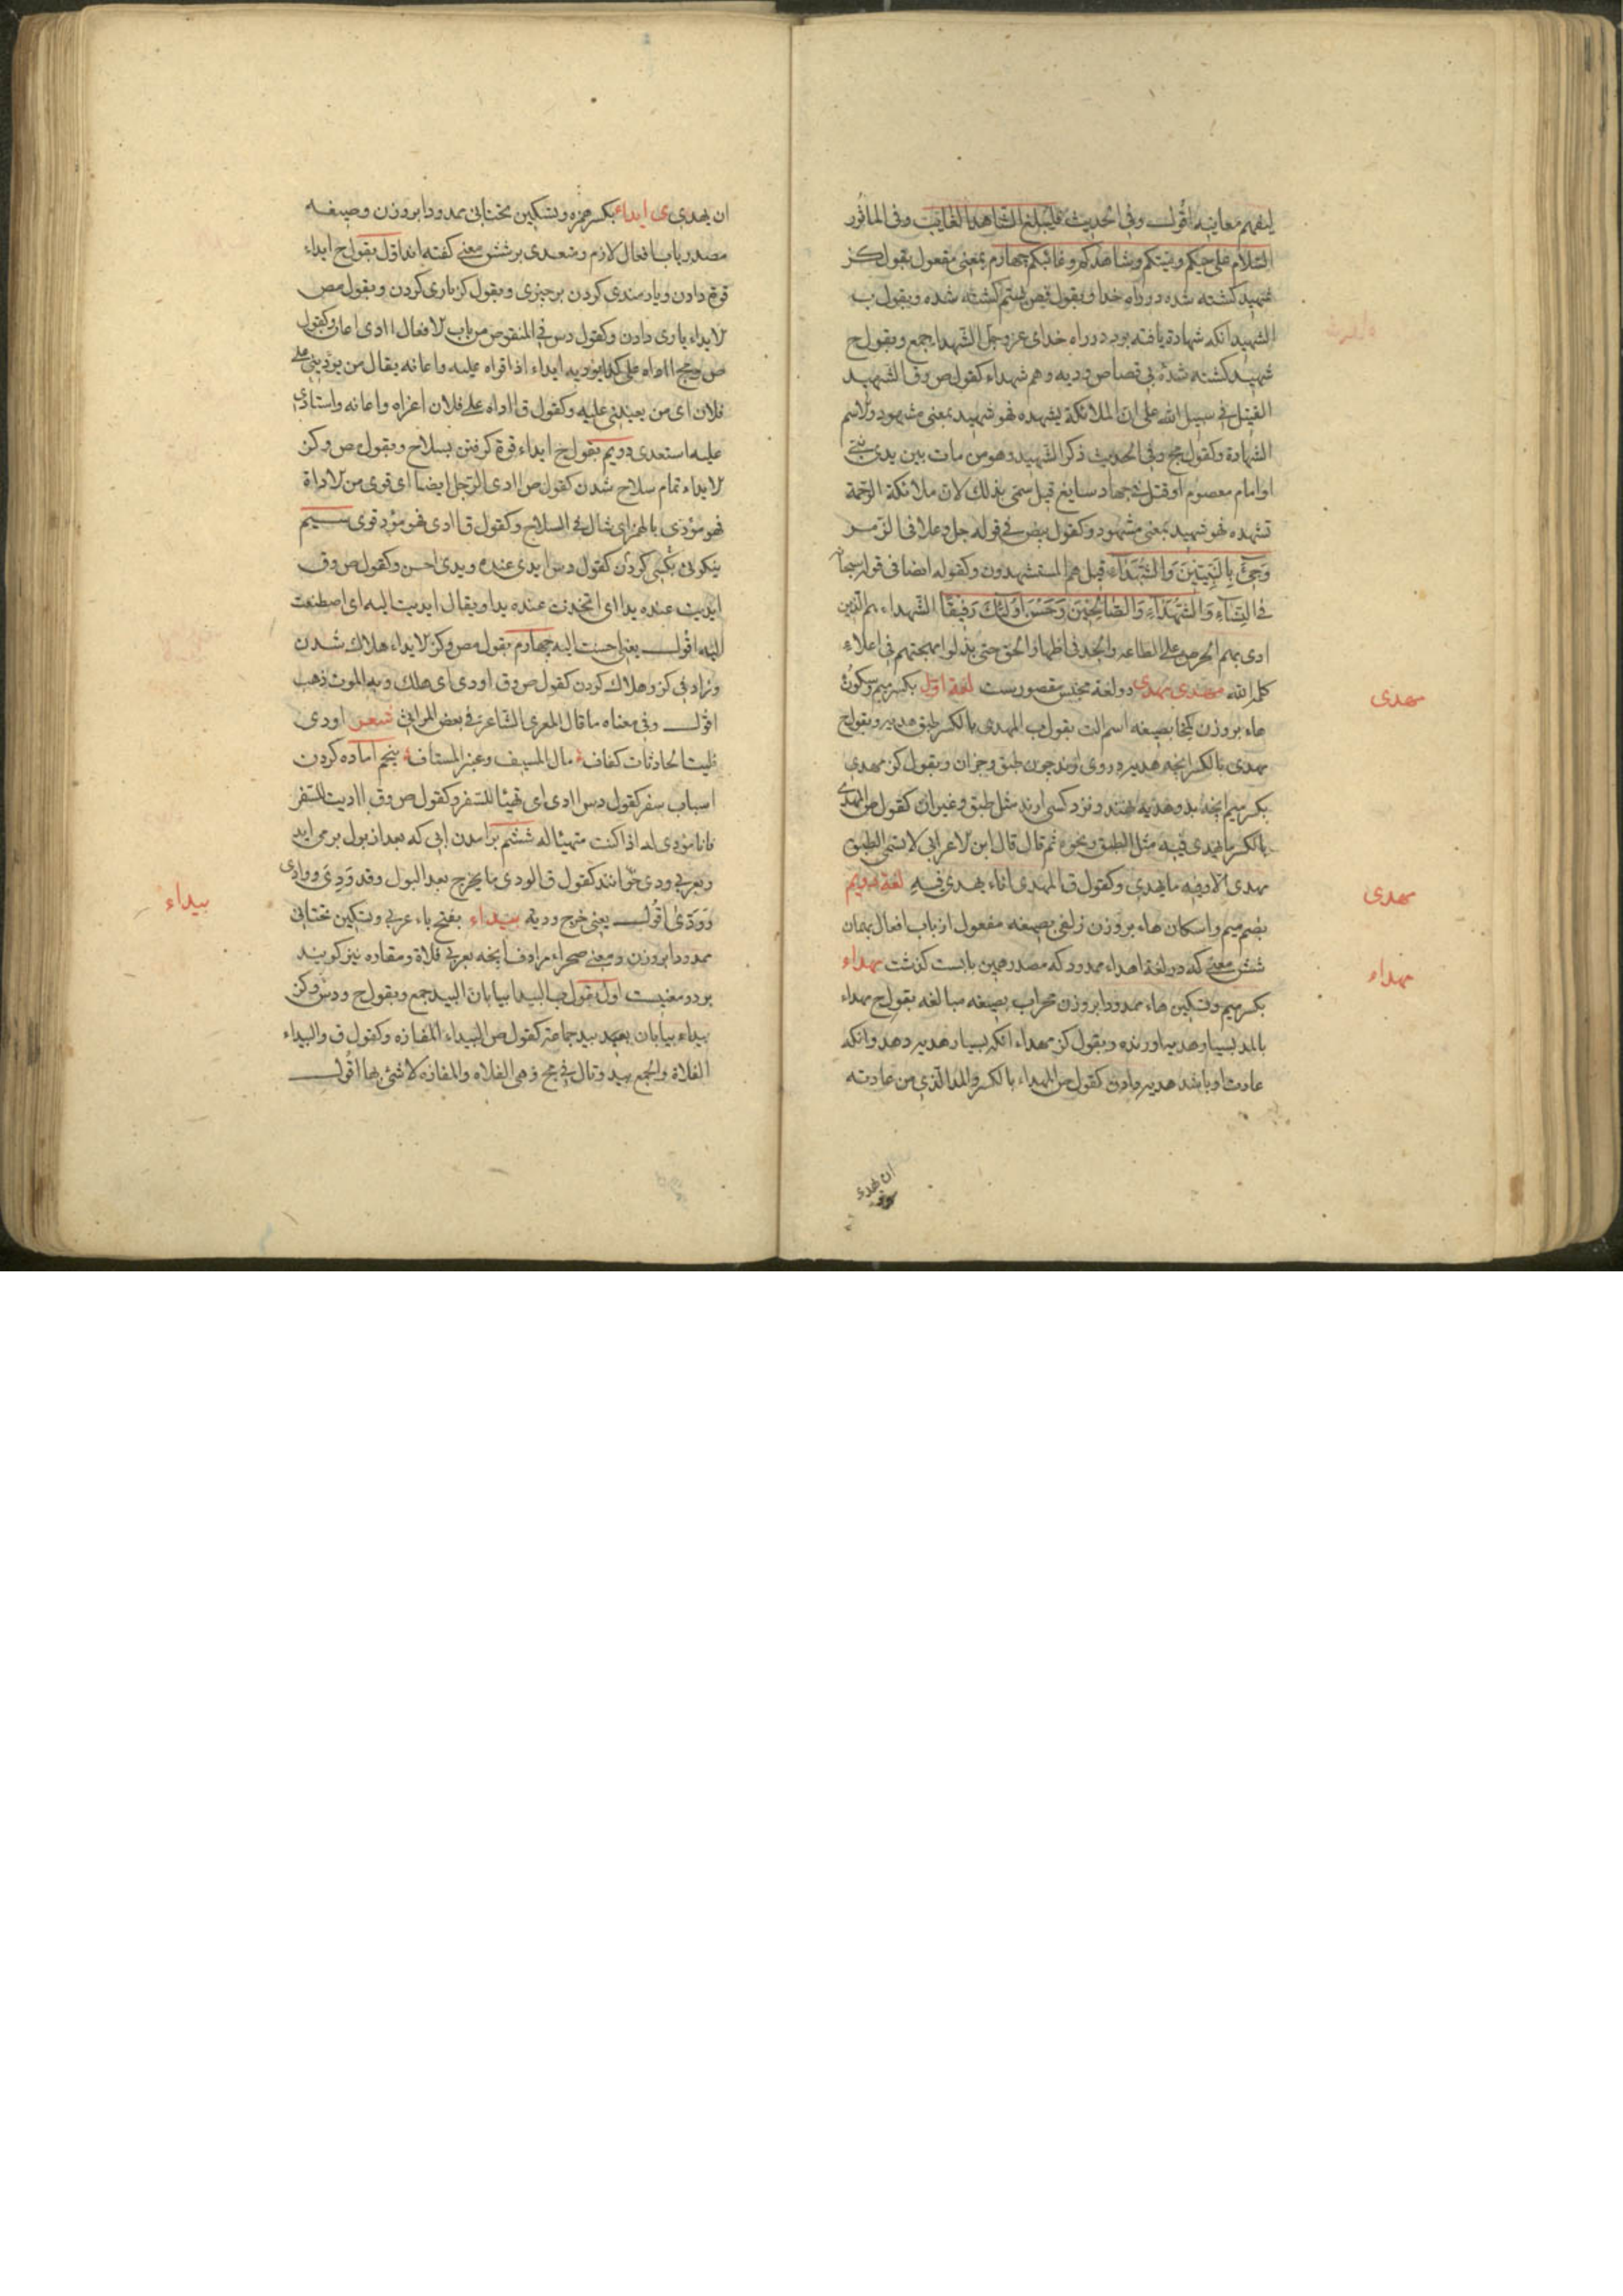 ليفهم معانيه اقول وفي الحديث فليبلغ الشاهد الغايب وفي الماثور
السّلام على حيكم وميتكم وشاهدكم وغائبكم چهارم بمعنى مفعول بقول كنز
شهيد كشته شده در راه خدا وبقول بستم كشته شده وبقول ب
الشهيد انكه شهادة يافته بود در راه خداى عزوجل الشهدا جمع وبقول ح
شهيد كشته شده بى قصاص وديه وهم شهداء كقول ص وق الشهيد
القتيل في سبيل الله على ان الملائكة يشهده فهو شهيد بمعنى مشهود والاسم
الشهادة وكقول مج وفي الحديث ذكر الشهيد وهو من مات بين يدى نبيّ
او امام معصوم او قتل في جهاد سايغ قيل سمّى بذلك لان ملائكة الرحمة
تشهده فهو شهيد بمعنى مشهود وكقول بيض في قوله جل وعلا في الزمر
وَجِئَ بِالنَّبِيِّينَ وَالشُّهَدَاءِ قيل هم المستشهدون وكقوله ايضا في قوله سبحانه
في النساء وَالشُّهَدَاءِ وَالصَّالِحِينَ وَحَسُنَ أُولَئِكَ رَفِيقًا الشهداء هم الذين
ادى بهم الحرص على الطاعه والجد في اظهار الحق حتى بذلوا مهجتهم في اعلاء
كلمة الله مهدى مهدى دو لغة مقصورست لغة اوّل بكسر ميم وسكون
هاء بر وزن بصيغه اسم الت بقول ب المهدى بالكسر طبق هديه وبقول ح
مهدى بالكسر انچه هديه در وى اورند چون طبق وخوان وبقول كنز مهدى
بكسر ميم انچه بدو هديه نهند ونزد كسى ارند مثل طبق وغير ان كقول ص المهدى
بالكسر ما يهدى فيه مثل الطبق ونحوه ثم قال قال ابن الاعرابي لا يسمّى الطبق
مهدى الا وفيه ما يهدى وكقول ق المهدى اناء يهدى فيه لغة دويم
بضم ميم واسكان هاء بر وزن زلفى بصيغه مفعول از باب افعال بهمان
شش معنى كه در لغة اهداء ممدود كه مصدر همين بابست كذشت مهداء
بكسر ميم وتسكين هاء ممدودا بر وزن محراب بصيغه مبالغه بقول ح مهداء
بالمد بسيار هديه اورنده وبقول كنز مهداء انكه بسيار هديه دهد وانكه
عادت او باشد هديه دادن كقول ص المهداء بالكسر والمد الذي من عادته
ان يهدى
مهدى
مهدى
مهداء
ان يهدى ى ايداء بكسر همزه وتسكين تحتانى ممدودا بر وزن وصيغه
مصدر باب افعال لازم ومتعدى بر شش معنى كفته اند اوّل بقول ح ايداء
قوة دادن ويارمندى كردن بر چيزى وبقول كنز يارى كردن وبقول مص
الايداء يارى دادن وكقول دس في المنقوص من باب الافعال اادى اعان وكقول
ص ومج ااداه على كذا يوديه ايداء اذا قواه عليه واعانه يقال من يوديني على
فلان اى من يعينني عليه وكقول ق ااداه على فلان اعزاه واعانه واستادى
عليه استعدى دويم بقول ح ايداء قوة كرفتن بسلاح وبقول ص وكنز
الايداء تمام سلاح شدن كقول ص اادى الرجل ايضا اى قوى من الاداة
فهو مؤدى بالهمز اى شاك في السلاح وكقول ق اادى فهو مؤد قوى سيم
نيكوئى بكسى كردن كقول دس ايدى عنده ويدى احسن وكقول ص وق
ايديت عنده يدا اى اتخذت عنده يدا ويقال ايديت اليه اى اصطنعت
اليه اقول يعني احسنت اليه چهارم بقول مص وكنز الايداء هلاك شدن
وزاد في كنز وهلاك كردن كقول ص وق اودى اى هلك وبه الموت ذهب
اقول وفي معناه ما قال المعرى الشاعر في بعض المراثى شعر اودى
فليت الحادثات كفاف مال المسيف وعنبر المستاف پنجم اماده كردن
اسباب سفر كقول دس اادى اى تهيئا للسفر وكقول ص وق ااديت للسفر
فانا مؤدى له اذا كنت متهيئا له ششم برامدن ابى كه بعد از بول برمى ايد
وبعربى ودى خوانند كقول ق الودى ما يخرج بعد البول وقد ودى وواودى
وودّى اقول يعني خرج وديه بيداء بفتح باء عربى وتسكين تحتانى
ممدودا بر وزن ومعنى صحراء مرادف انچه بعربى فلاة ومفازه نيز كويند
بر دو معنيست اول بقول ب البيدا بيابان البيد جمع وبقول ح ودس وكنز
بيداء بيابان بيد جماعة كقول ص البيداء المفازه وكقول ق والبيداء
الفلاة والجمع بيد وقال في مج وهى الفلاه والمفازه لا شئ بها اقول
بيداء